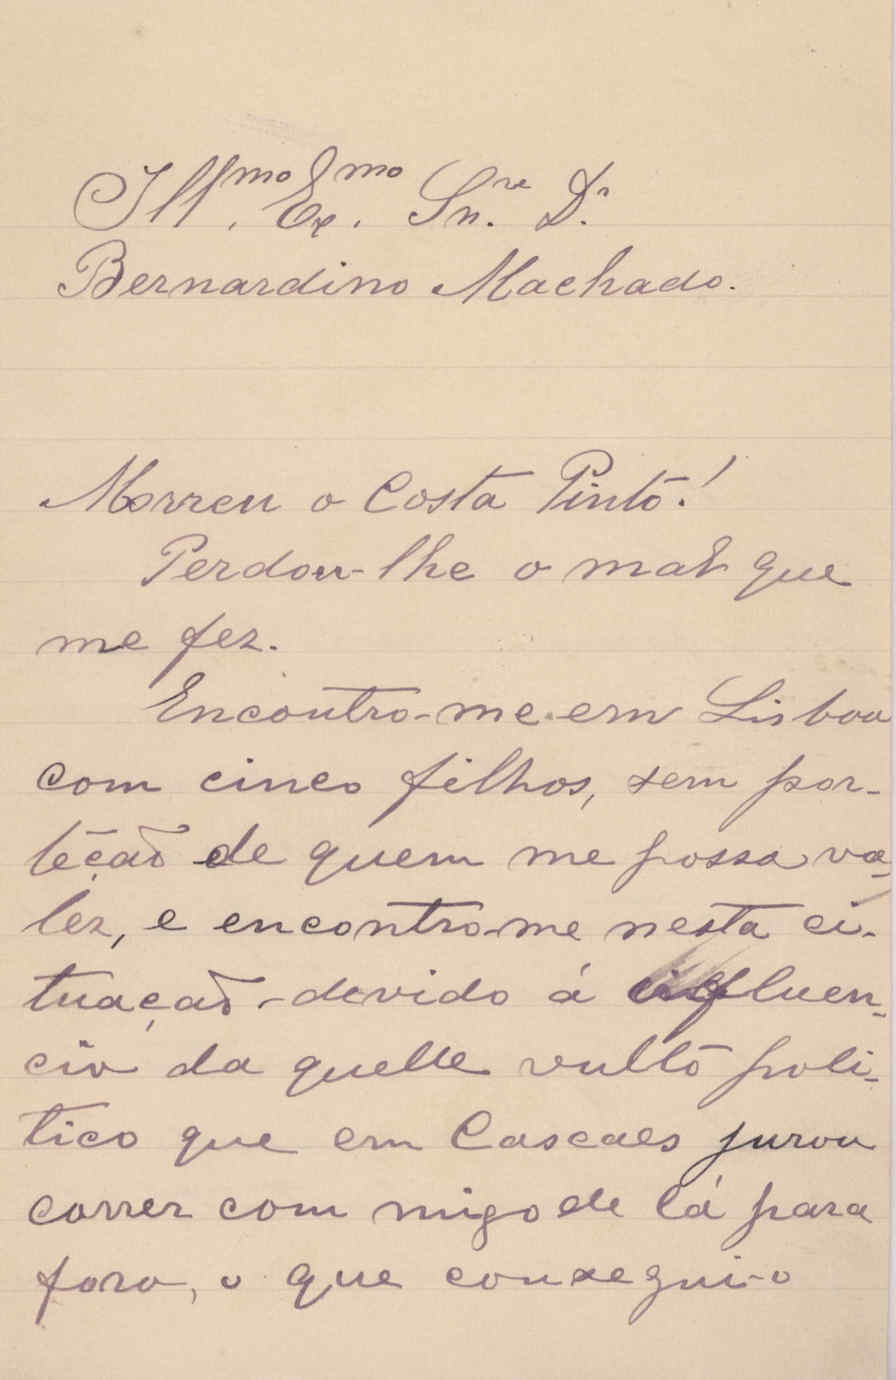 Ill.mo Ex.mo Sn.re D.r
Bernardino Machado.
Morreu o Costa Pinto!
Perdou-lhe o mal que
me fez.
Encontro-me em Lisboa
com cinco filhos, sem por-
téção de quem me possa va-
ler, e encontro-me nesta ci-
tuação devido á influen-
cia da quelle vulto poli-
tico que em Cascaes jurou
correr com migo de lá para
fora, o que conseguio